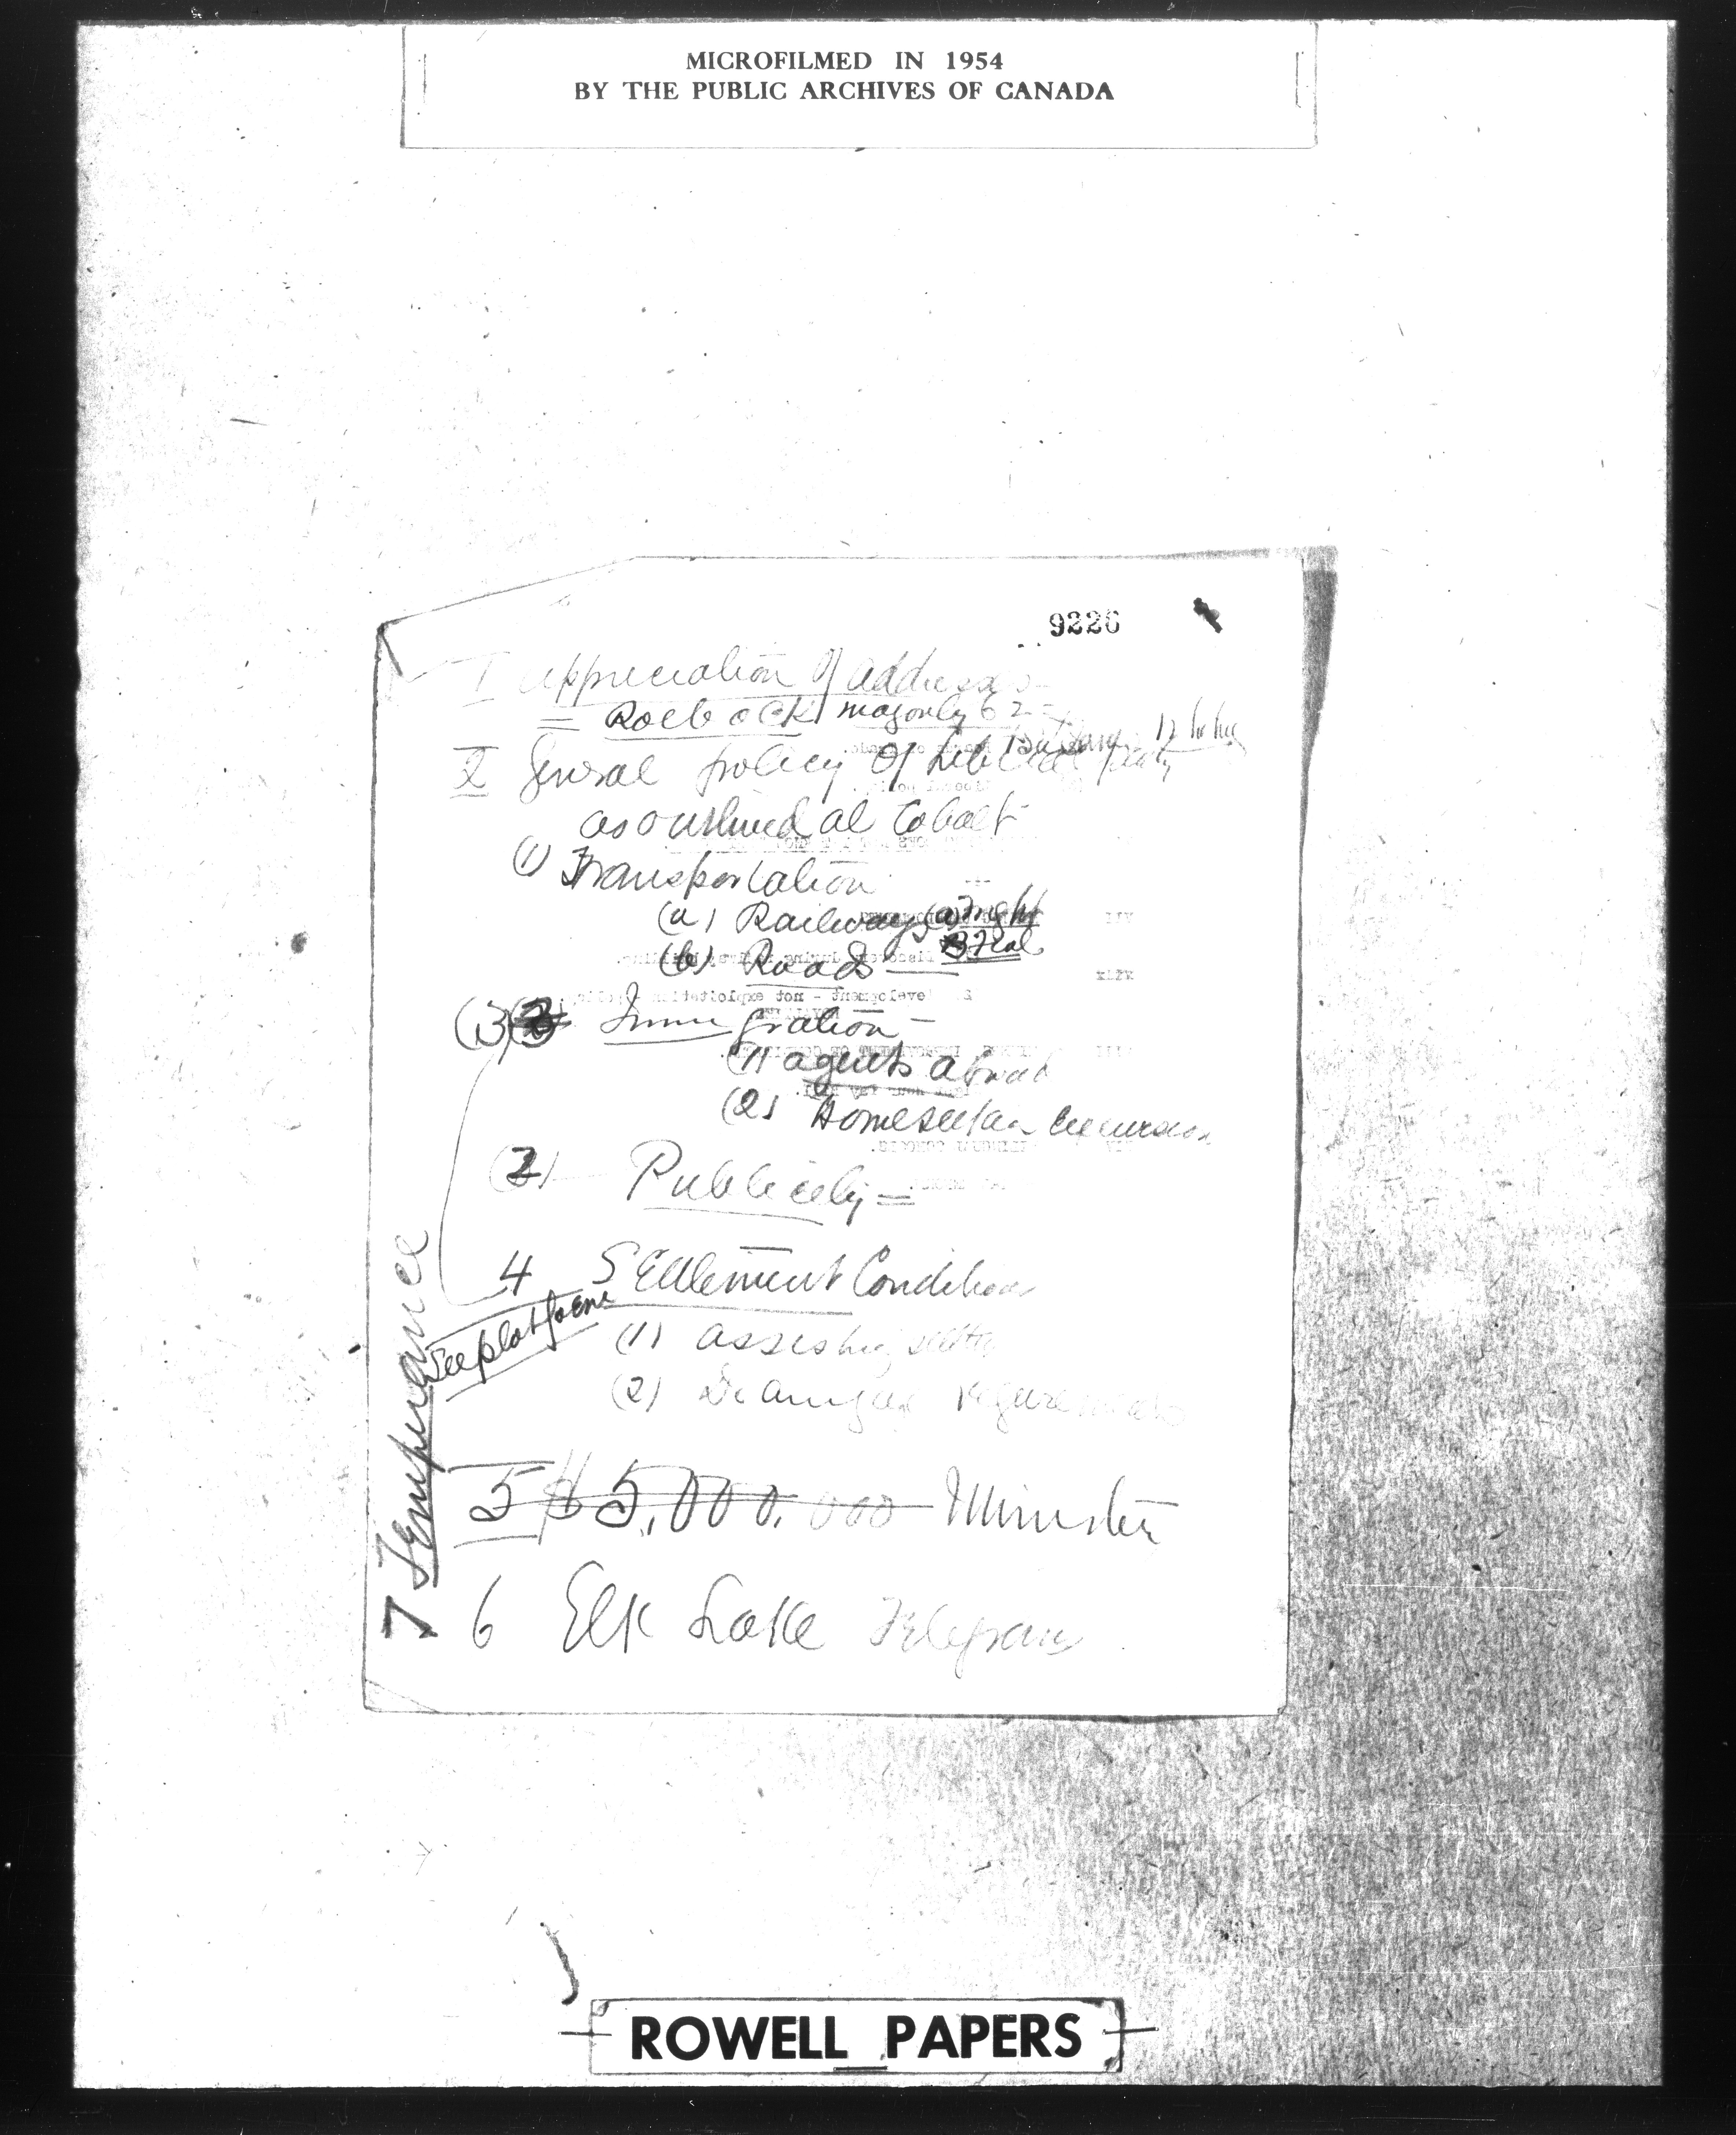 MICROFILMED IN 1954
BY THE PUBLIC ARCHIVES OF CANADA
9226
I Appreciation of address
= Roebock majority 62 -
2 General policy of Liberal party
as outlined at Cobalt
(1) Transportation
(a) Railways (a) Freight
(b) Roads
(3) Immigration -
(1) agents abroad
(2) Homeseekers Excursion
(2) Publicity =
4 Settlement Conditions
See platform
(1) assisting settlers
(2) requirements
5 $5,000,000 - Minister
6 Elk Lake Telegram
7 Temperance
ROWELL PAPERS